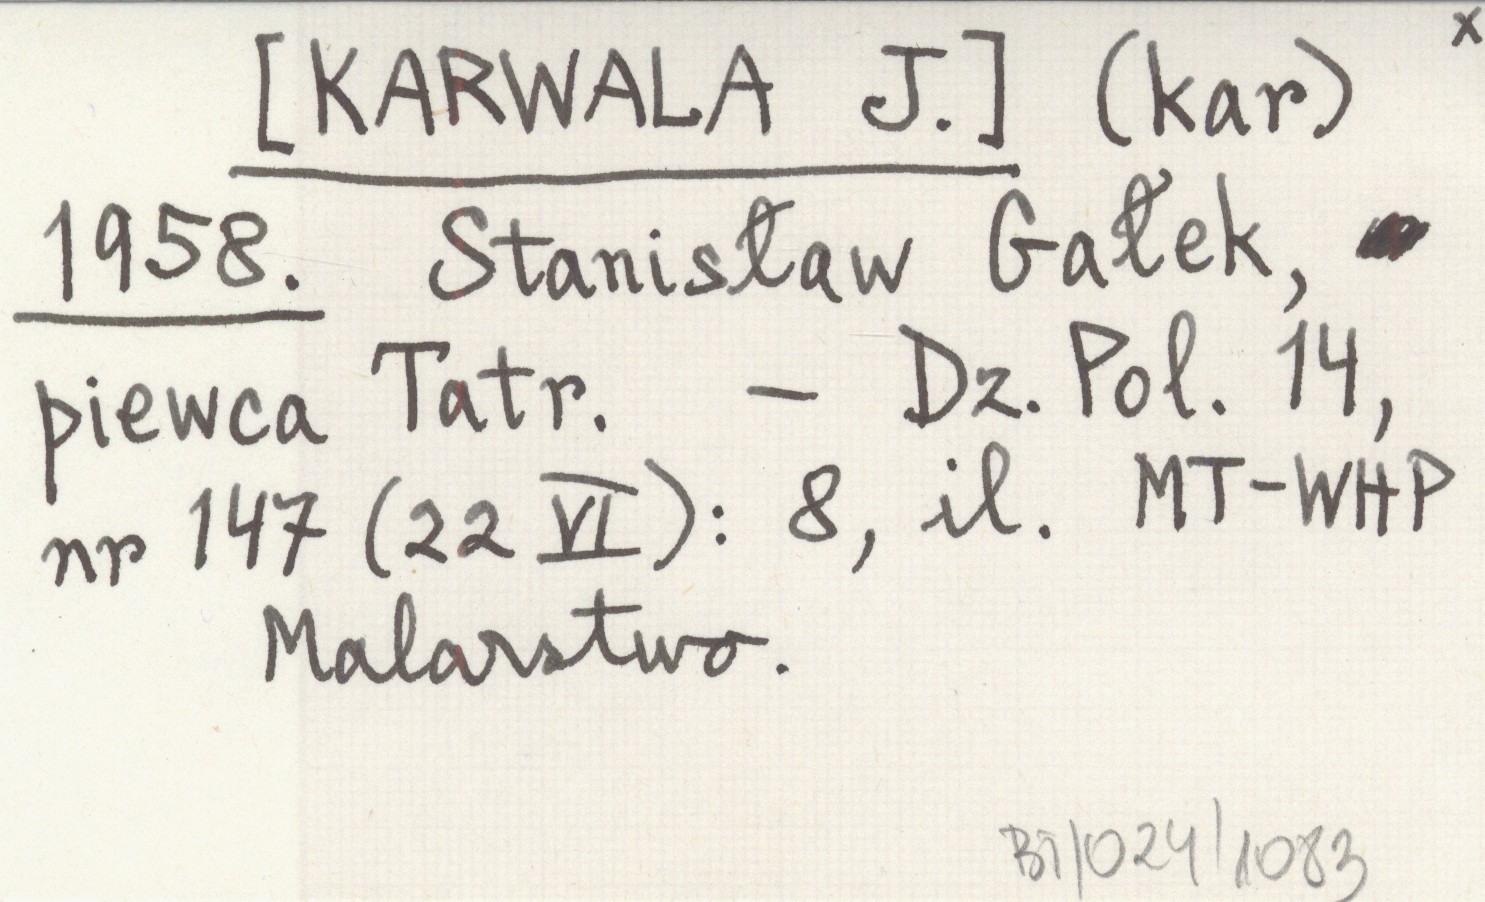 x
[KARWALA J.] (kar)
1958. Stanisław Gałek,
piewca Tatr. – Dz. Pol. 14,
nr 147 (22 VI): 8, il. MT-WHP
Malarstwo.
BT/024/1083